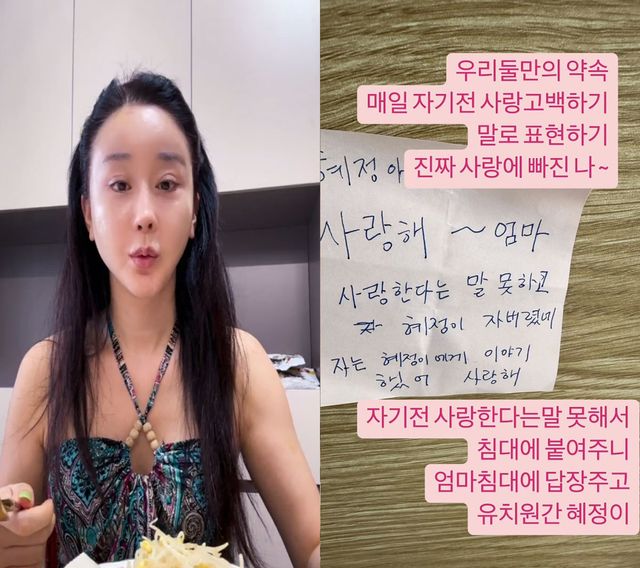 우리둘만의 약속
매일 자기전 사랑고백하기
말로 표현하기
진짜 사랑에 빠진 나~
혜정아
사랑해 ~ 엄마
사랑한다는 말 못하고
혜정이 자버렸네
자는 혜정이에게 이야기
했어 사랑해
자기전 사랑한다는말 못해서
침대에 붙여주니
엄마침대에 답장주고
유치원간 혜정이